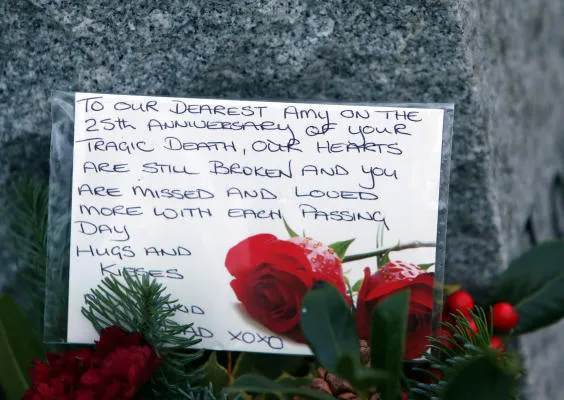 TO OUR DEAREST AMY ON THE
25th ANNIVERSARY OF YOUR
TRAGIC DEATH, OUR HEARTS
ARE STILL BROKEN AND YOU
ARE MISSED AND LOVED
MORE WITH EACH PASSING
DAY
HUGS AND
KISSES
XOXO